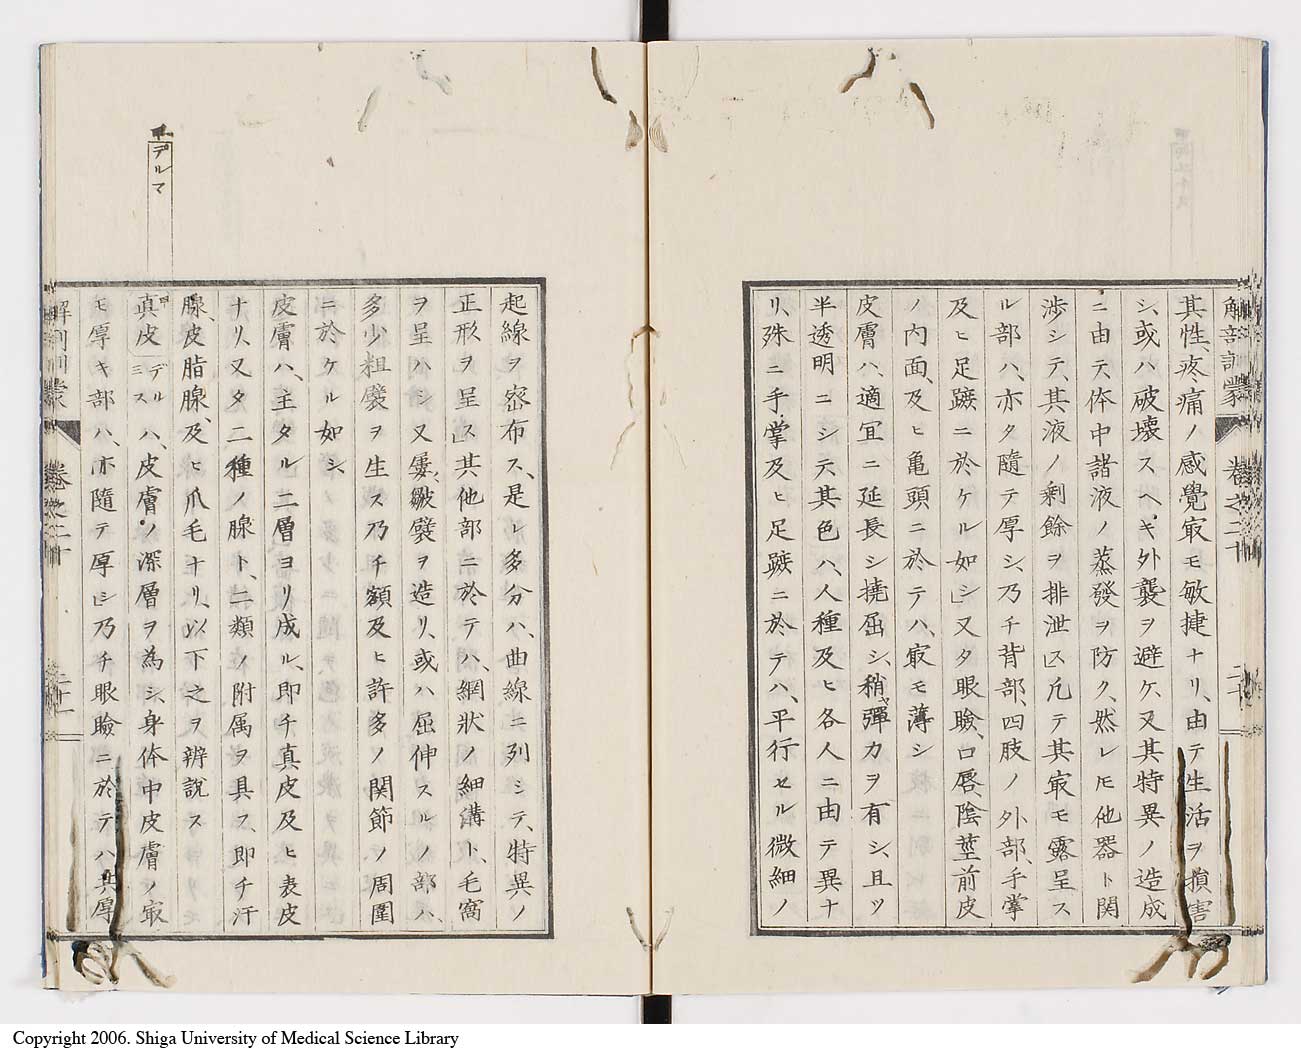 解剖訓蒙 巻之二十
其性、疼痛ノ感覺㝡モ敏捷ナリ、由テ生活ヲ損害
シ、或ハ破壊スヘキ外襲ヲ避ケ、又其特異ノ造成
ニ由テ、体中諸液ノ蒸發ヲ防ク、然レ𪜈他器ト関
渉シテ、其液ノ剰餘ヲ排泄ス」凢テ其㝡モ露呈ス
ル部ハ、亦タ隨テ厚シ、乃チ背部、四肢ノ外部、手掌
及ヒ足蹠ニ於ケル如シ」又タ眼瞼、口唇、陰莖前皮
ノ内面、及ヒ亀頭ニ於テハ、㝡モ薄シ
皮膚ハ、適冝ニ延長シ撓屈シ、稍彈力ヲ有シ、且ツ
半透明ニシテ其色ハ、人種及ヒ各人ニ由テ異ナ
リ、殊ニ手掌及ヒ足蹠ニ於テハ、平行セル微細ノ
起線ヲ密布ス、是レ多分ハ、曲線ニ列シテ、特異ノ
正形ヲ呈ス」其他部ニ於テハ、網状ノ細溝ト、毛窩
ヲ呈ハシ又屢皺襞ヲ造リ、或ハ屈伸スルノ部ハ、
多少粗襞ヲ生ス乃チ額及ヒ許多ノ関節ノ周圍
ニ於ケル如シ
皮膚ハ、主タル二層ヨリ成ル、即チ真皮及ヒ表皮
ナリ、又タ二種ノ腺ト、二類ノ附属ヲ具ス、即チ汗
腺、皮脂腺、及ヒ爪毛ナリ、以下之ヲ辨説ス
甲デルマ
真皮デルミスハ、皮膚ノ深層ヲ為シ、身体中皮膚ノ㝡
モ厚キ部ハ、亦隨テ厚シ」乃チ眼瞼ニ於テハ其厚
解剖訓蒙 巻之二十